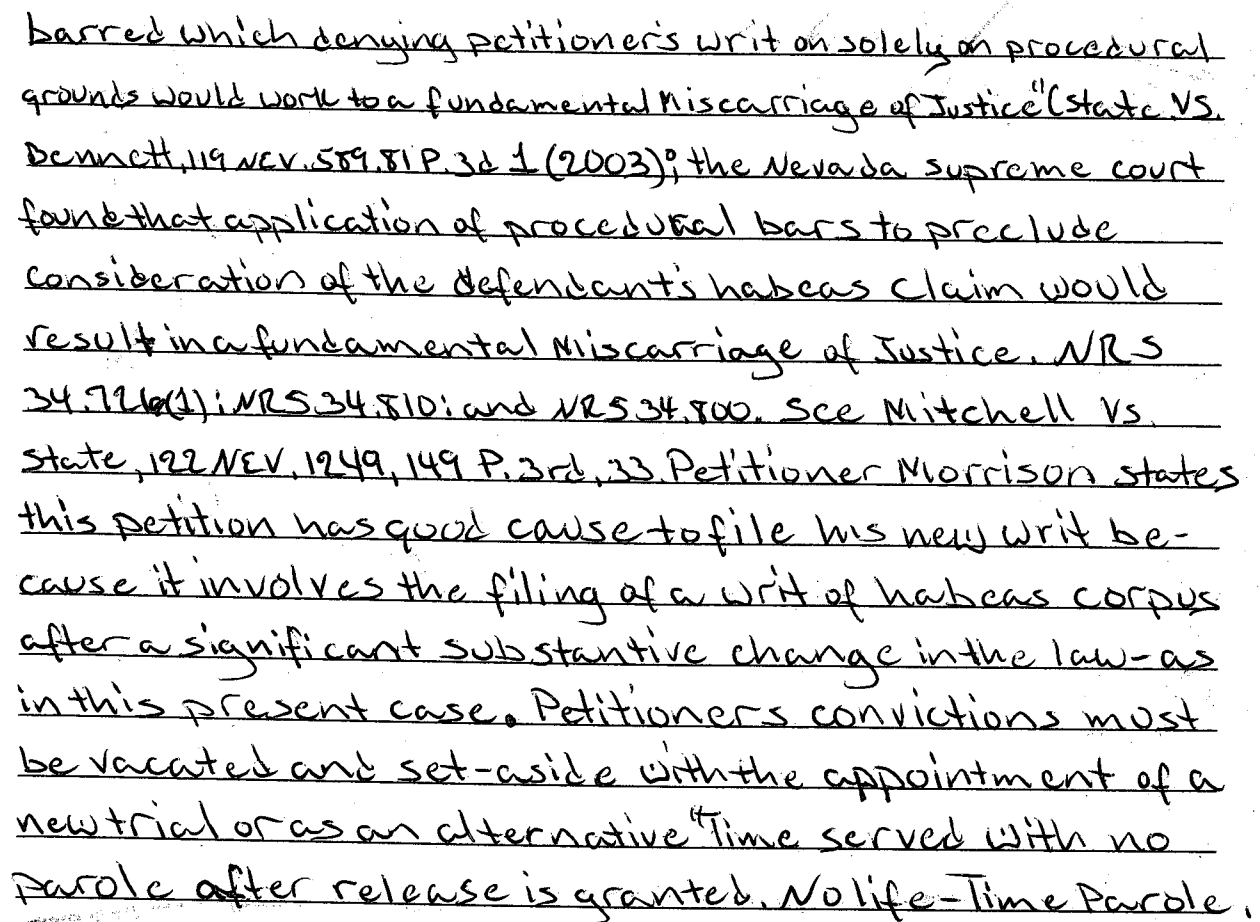 barred which denying petitioner's writ on solely on procedural
grounds would work to a fundamental Miscarriage of Justice" (State VS.
Bennett, 119 NEV. 589. 81 P. 3d 1 (2003); the Nevada supreme court
found that application of procedural bars to preclude
consideration of the defendant's habeas claim would
result in a fundamental Miscarriage of Justice. NRS
34.726(1); NRS 34.810; and NRS 34.800. See Mitchell Vs.
State, 122 NEV. 1249, 149 P. 3rd, 33. Petitioner Morrison states
this petition has good cause to file his new writ be-
cause it involves the filing of a writ of habeas corpus
after a significant substantive change in the law - as
in this present case. Petitioners convictions must
be vacated and set-aside with the appointment of a
new trial or as an alternative "Time served with no
parole after release is granted. No life-Time Parole.